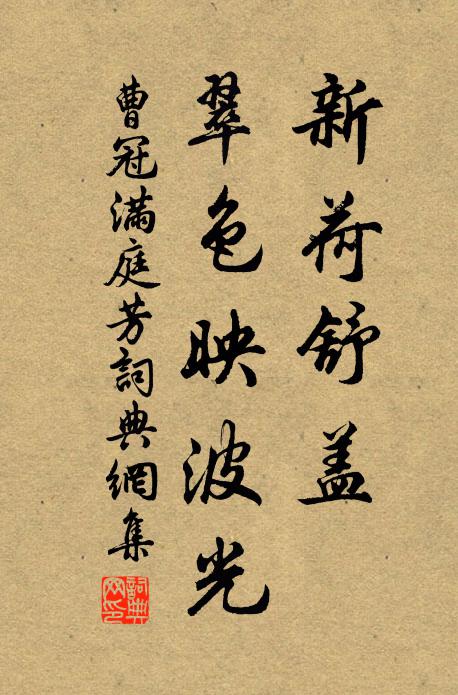 新荷舒盖
翠色映波光
曹冠滿庭芳詞典網集
詞典网印